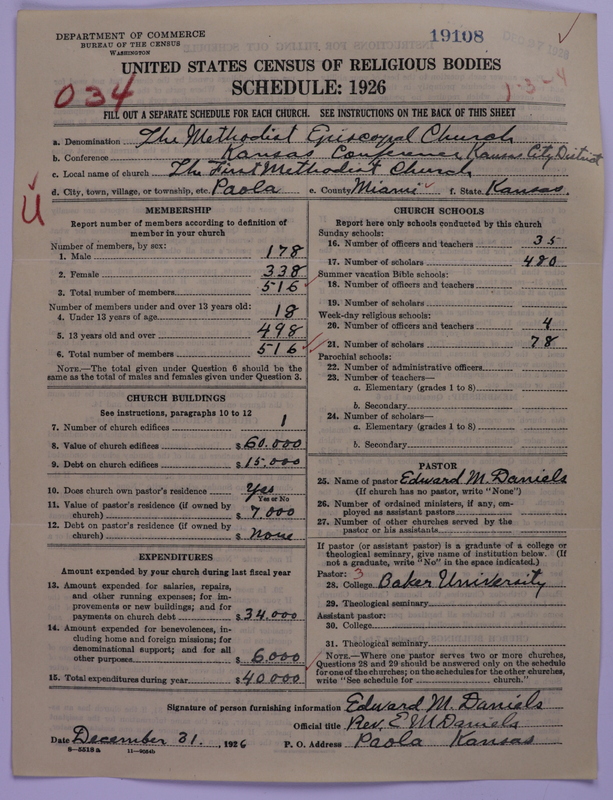 DEPARTMENT OF COMMERCE
BUREAU OF THE CENSUS
WASHINGTON
19108
UNITED STATES CENSUS OF RELIGIOUS BODIES
SCHEDULE: 1926
034
1-3-4
FILL OUT A SEPARATE SCHEDULE FOR EACH CHURCH. SEE INSTRUCTIONS ON THE BACK OF THIS SHEET
a. Denomination The Methodist Episcopal Church
b. Conference Kansas Conference Kansas City District
c. Local name of church The First Methodist Church
d. City, town, village, or township, etc. Paola e. County Miami f. State Kansas.
U
MEMBERSHIP
Report number of members according to definition of
member in your church
Number of members, by sex:
1. Male 178
2. Female 338
3. Total number of members 516
Number of members under and over 13 years old:
4. Under 13 years of age 18
5. 13 years old and over 498
6. Total number of members 516
NOTE.—The total given under Question 6 should be the
same as the total of males and females given under Question 3.
CHURCH BUILDINGS
See instructions, paragraphs 10 to 12
7. Number of church edifices 1
8. Value of church edifices $ 60.000
9. Debt on church edifices $ 15.000
10. Does church own pastor's residence Yes
Yes or No
11. Value of pastor's residence (if owned by
church) $ 7,000
12. Debt on pastor's residence (if owned by
church) $ none
EXPENDITURES
Amount expended by your church during last fiscal year
13. Amount expended for salaries, repairs,
and other running expenses; for im-
provements or new buildings; and for
payments on church debt $ 34.000
14. Amount expended for benevolences, in-
cluding home and foreign missions; for
denominational support; and for all
other purposes $ 6.000
15. Total expenditures during year $ 40000
CHURCH SCHOOLS
Report here only schools conducted by this church
Sunday schools:
16. Number of officers and teachers 35
17. Number of scholars 480
Summer vacation Bible schools:
18. Number of officers and teachers
19. Number of scholars
Week-day religious schools:
20. Number of officers and teachers 4
21. Number of scholars 78
Parochial schools:
22. Number of administrative officers
23. Number of teachers—
a. Elementary (grades 1 to 8)
b. Secondary
24. Number of scholars—
a. Elementary (grades 1 to 8)
b. Secondary
PASTOR
25. Name of pastor Edward M. Daniels
(If church has no pastor, write "None")
26. Number of ordained ministers, if any, em-
ployed as assistant pastors
27. Number of other churches served by the
pastor or his assistants
If pastor (or assistant pastor) is a graduate of a college or
theological seminary, give name of institution below. (If
not a graduate, write "No" in the space indicated.)
Pastor: 3
28. College Baker University
29. Theological seminary
Assistant pastor:
30. College
31. Theological seminary
NOTE.—Where one pastor serves two or more churches,
Questions 28 and 29 should be answered only on the schedule
for one of the churches; on the schedules for the other churches,
write "See schedule for church."
Signature of person furnishing information Edward M. Daniels
Official title Rev. E M Daniels
Date December 31., 1926 P. O. Address Paola Kansas
8—5518 a 11—9054b